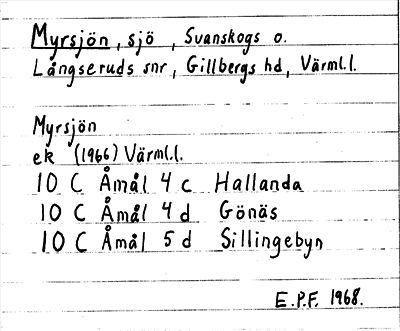 Myrsjön, sjö, Svanskogs o.
Långseruds snr, Gillbergs hd, Värml.l.
Myrsjön
ek (1966) Värml.l.
10 C Åmål 4 c Hallanda
10 C Åmål 4 d Gönäs
10 C Åmål 5 d Sillingebyn
E.P.F. 1968.